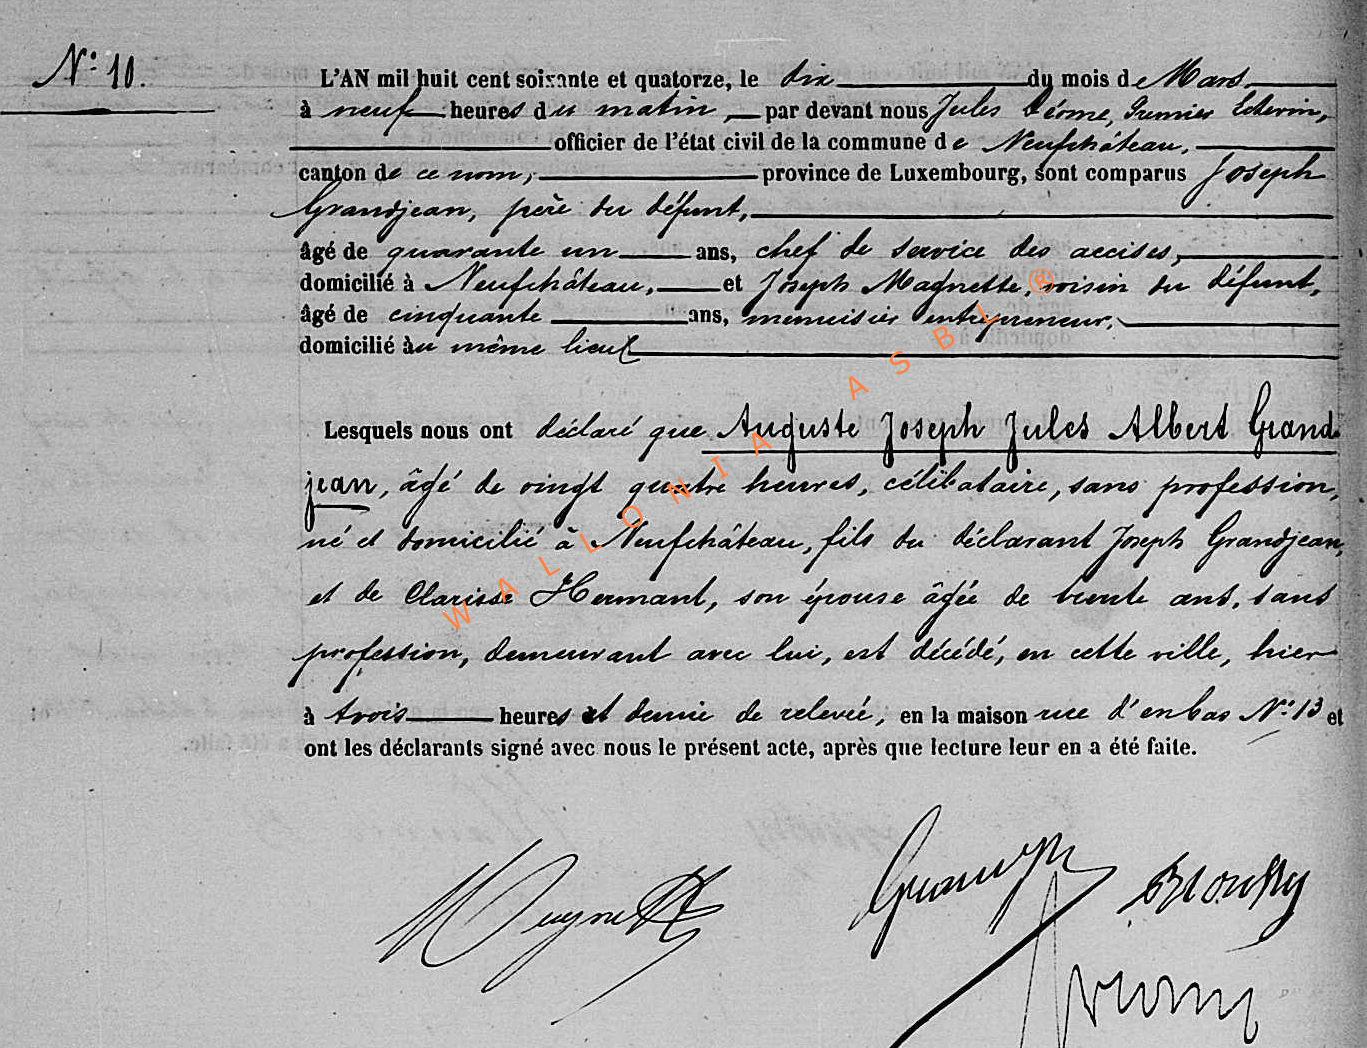 N° 10.
L'AN mil huit cent soixante et quatorze, le dix du mois de Mars,
à neuf heures du matin, par devant nous Jules Déome, Premier Echevin,
officier de l'état civil de la commune de Neufchâteau,
canton de ce nom, province de Luxembourg, sont comparus Joseph
Grandjean, père du défunt,
âgé de quarante un ans, chef de service des accises,
domicilié à Neufchâteau, et Joseph Magnette, voisin du défunt,
âgé de cinquante ans, menuisier entrepreneur,
domicilié au même lieu
Lesquels nous ont déclaré que Auguste Joseph Jules Albert Grand-
jean, âgé de vingt quatre heures, célibataire, sans profession,
né et domicilié à Neufchâteau, fils du déclarant Joseph Grandjean,
et de Clarisse Hermant, son épouse âgée de trente ans, sans
profession, demeurant avec lui, est décédé, en cette ville, hier
à trois heures et demie de relevée, en la maison rue d'en bas N° 13 et
ont les déclarants signé avec nous le présent acte, après que lecture leur en a été faite.
Magnette
Grandjn
WALLONIA ASBL ®